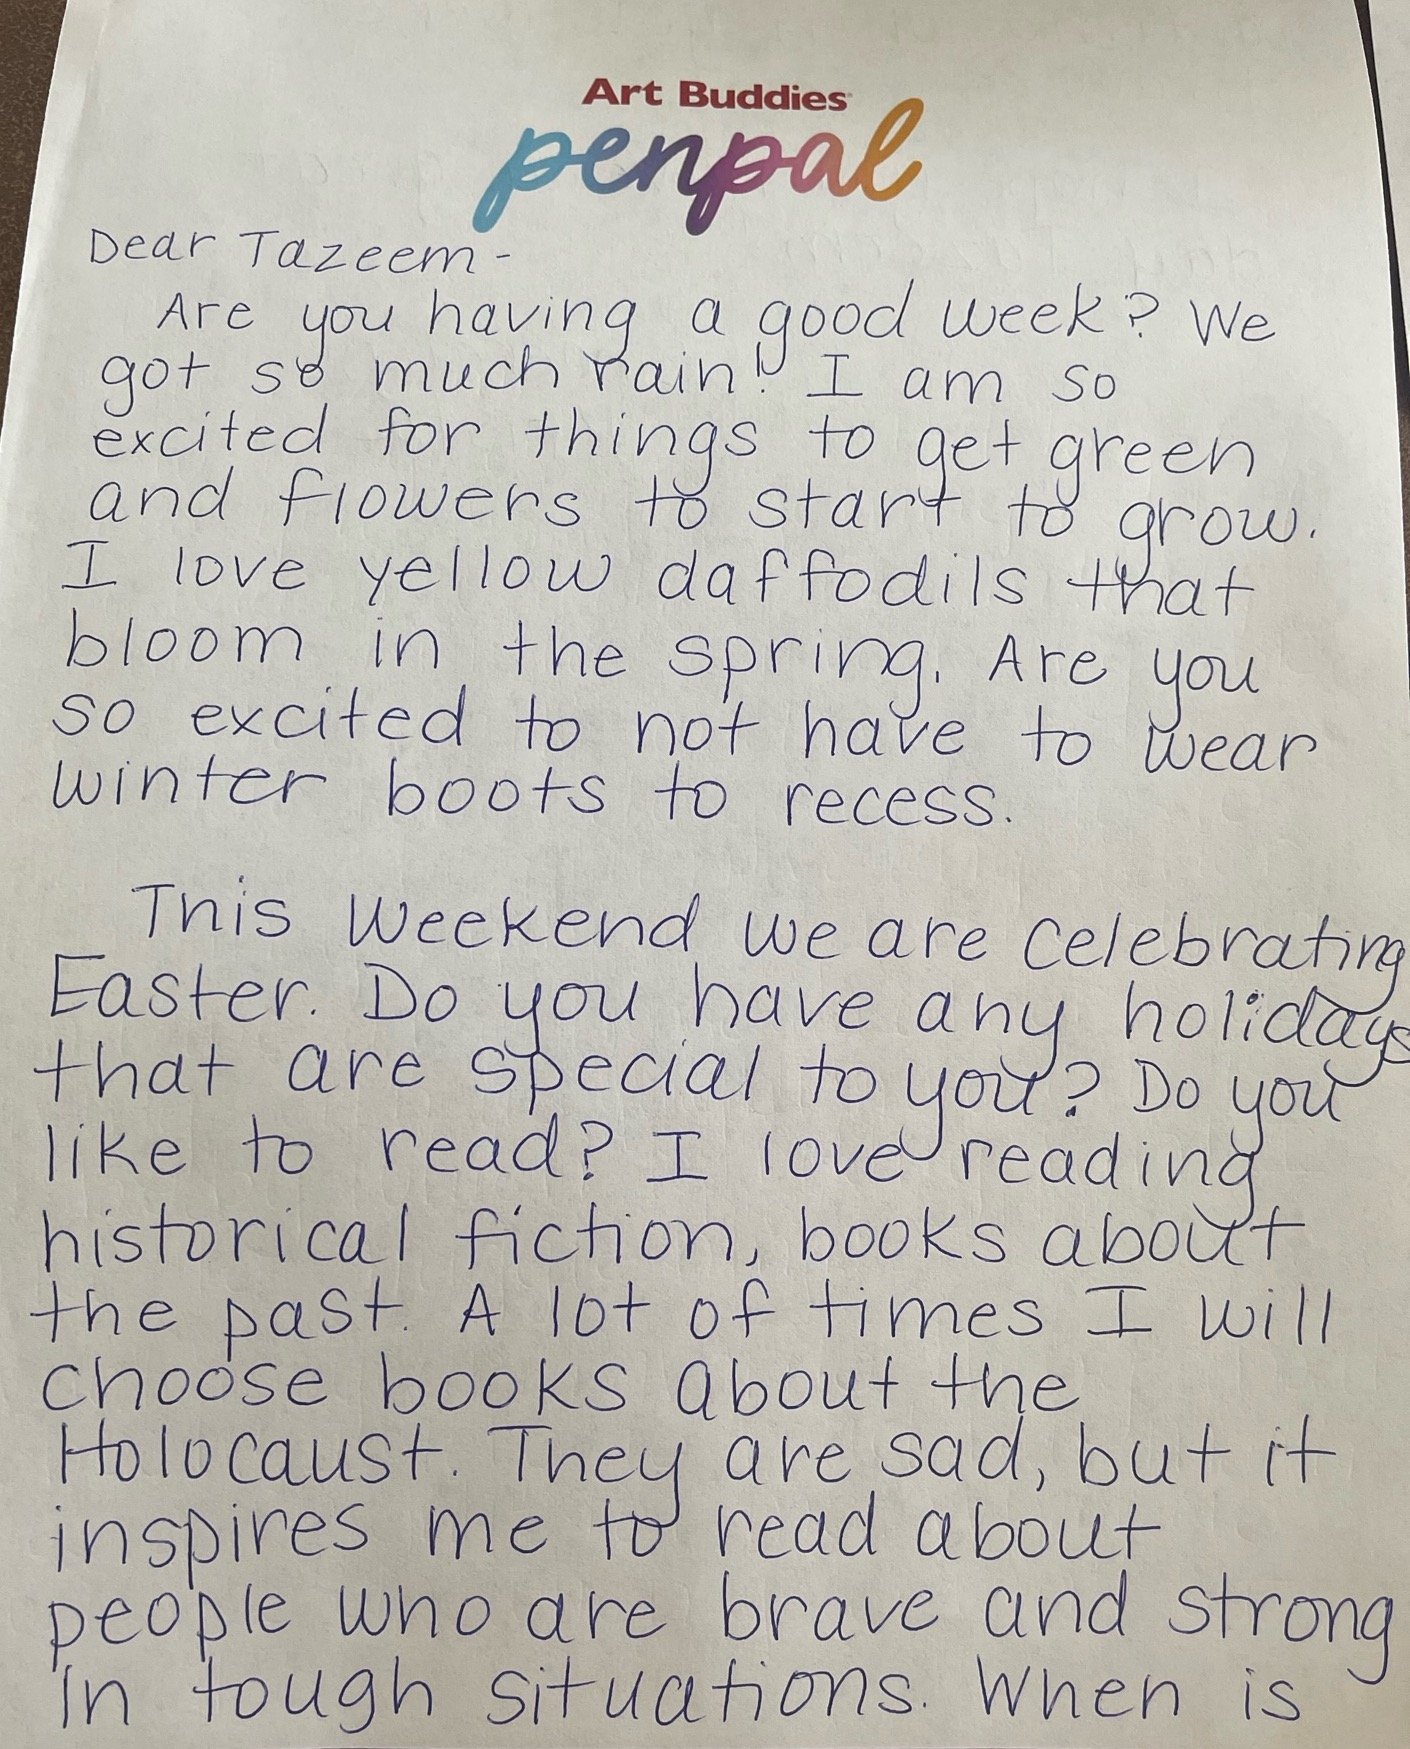 Art Buddies
penpal
Dear Tazeem-
Are you having a good week? We
got so much rain! I am so
excited for things to get green
and flowers to start to grow.
I love yellow daffodils that
bloom in the spring. Are you
so excited to not have to wear
winter boots to recess.
This weekend we are celebrating
Easter. Do you have any holidays
that are special to you? Do you
like to read? I love reading
historical fiction, books about
the past. A lot of times I will
choose books about the
Holocaust. They are sad, but it
inspires me to read about
people who are brave and strong
in tough situations. When is